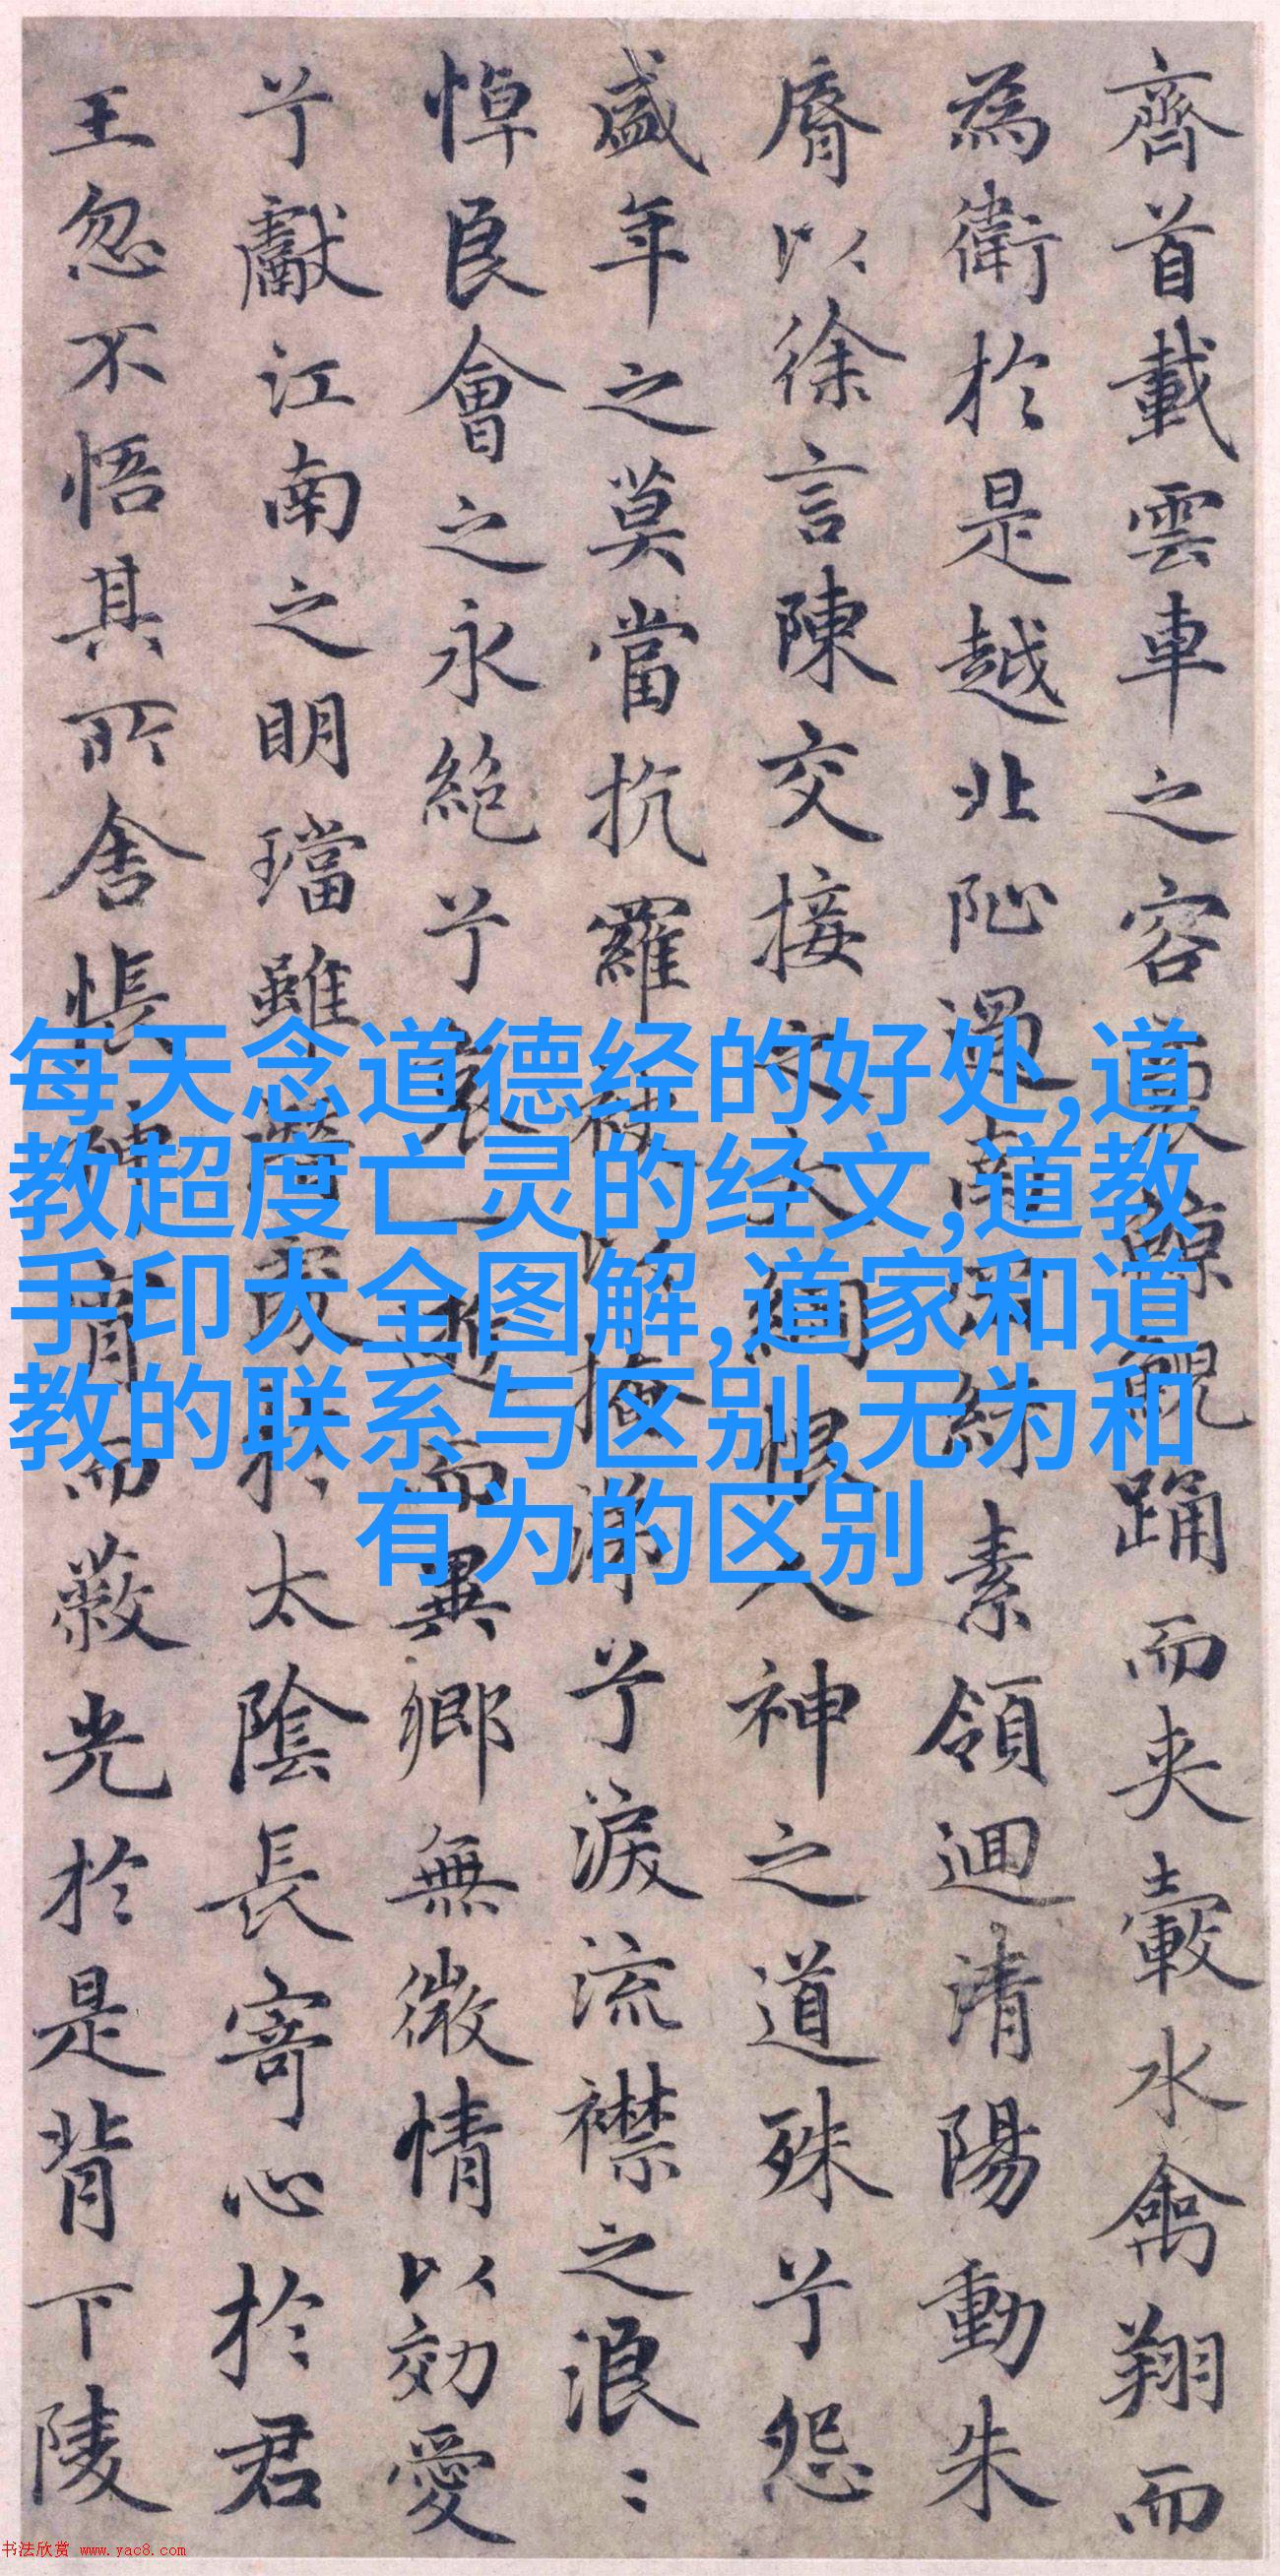 齊首載雲車之容裔鯨鯢踊而夾轂水禽翔而
為衛於是越北沚過南岡紆素領迴清陽動朱
脣以徐言陳交接之大綱恨人神之道殊兮怨
盛年之莫當抗羅袂以掩涕兮淚流襟之浪〻
悼良會之永絕兮哀一逝而異鄉無微情以効愛
兮獻江南之明璫雖潛處於太陰長寄心於君
王忽不悟其所舍悵神宵而蔽光於是背下陵
每天念道德经的好处,道
教超度亡灵的经文,道教
手印大全图解,道家和道
教的联系与区别,无为和
有为的区别
书法欣赏 www.yac8.com